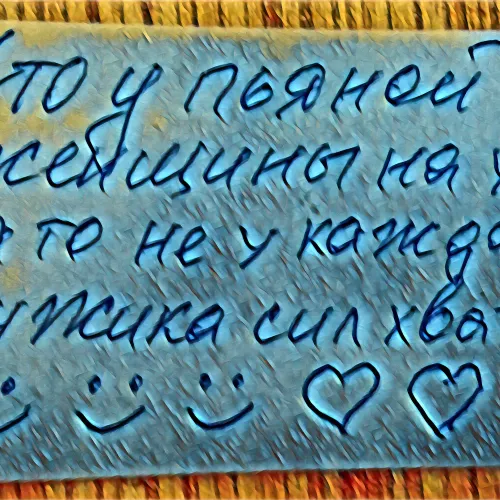 Что у пьяной
женщины на у
то не у каждо
ужика сил хва